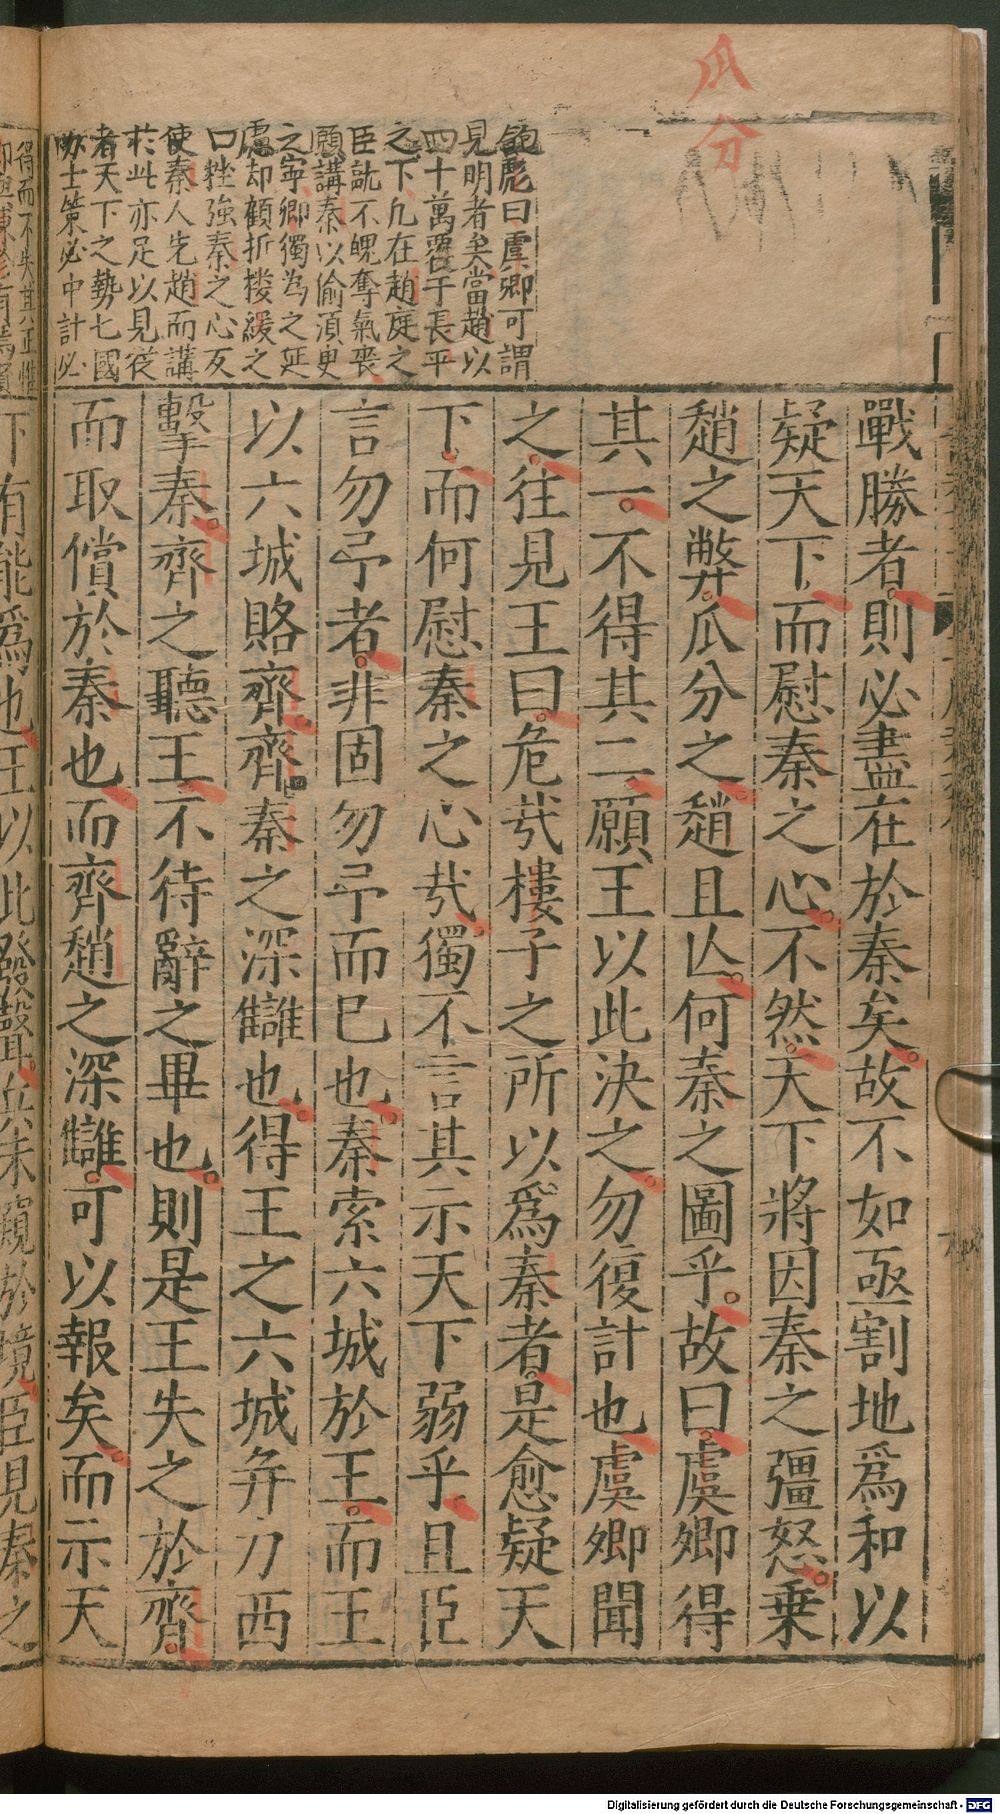 瓜分
鮑彪曰虞卿可謂
見明者矣當趙以
四十萬覆于長平
之下凡在趙庭之
臣孰不魄奪氣喪
願講秦以偷須臾
之寧卿獨為之延
慮却顧折樓緩之
口挫強秦之心反
使秦人先趙而講
於此亦足以見從
者天下之勢七國
辯士策必中計必
戰勝者則必盡在於秦矣故不如亟割地爲和以
疑天下而慰秦之心不然天下將因秦之彊怒乗
趙之弊瓜分之趙且亾何秦之圖乎故曰虞卿得
其一不得其二願王以此決之勿復計也虞卿聞
之往見王曰危㢤樓子之所以爲秦者是愈疑天
下而何慰秦之心㢤獨不言其示天下弱乎且臣
言勿予者非固勿予而已也秦索六城於王而王
以六城賂齊齊秦之深讎也得王之六城并力西
擊秦齊之聽王不待辭之畢也則是王失之於齊
而取償於秦也而齊趙之深讎可以報矣而示天
得而不失其正惟
下有能爲也王以此發聲兵未窺於境臣見秦之
Digitalisierung gefördert durch die Deutsche Forschungsgemeinschaft - DFG